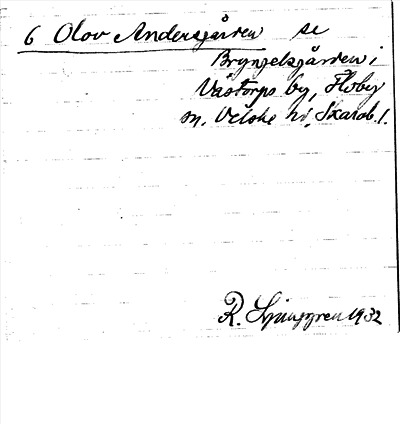 6 Olov Andersgården se
Bryngelsgården i
Västorps by, Floby
sn. Vilske hd, Skarab. l.
R. Ljunggren 1932